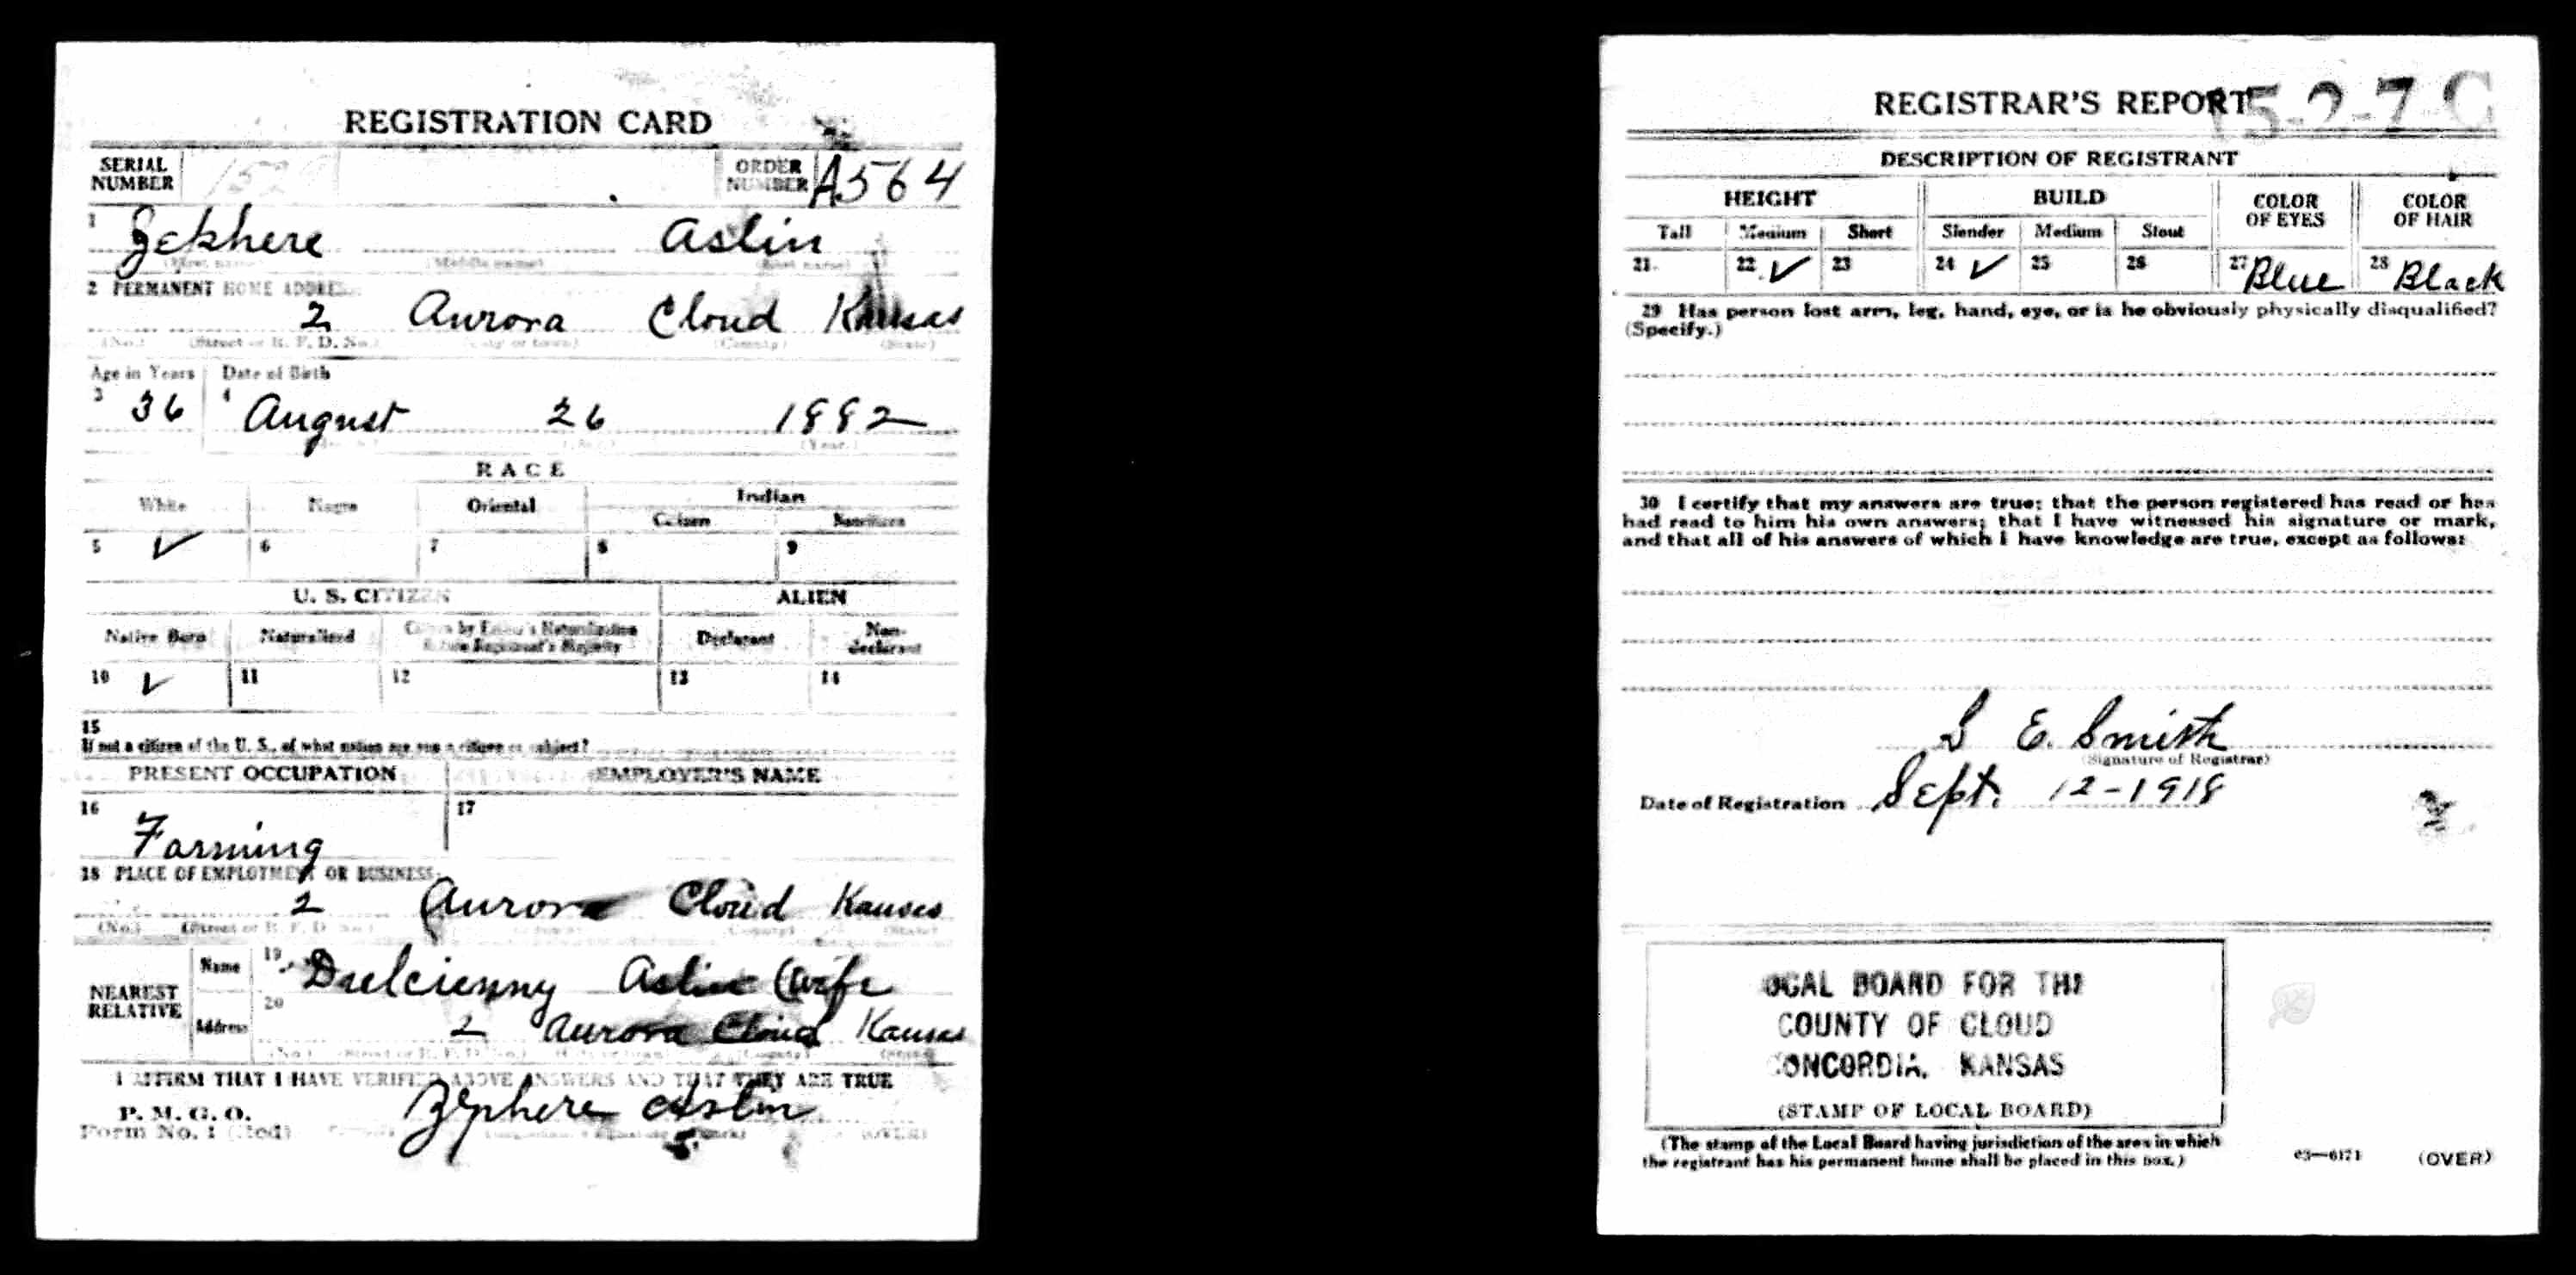 REGISTRATION CARD
SERIAL NUMBER
ORDER NUMBER A564
1 Zekhere Aslin
(First name) (Middle name) (Last name)
2 PERMANENT HOME ADDRESS:
2 Aurora Cloud Kansas
(No.) (Street or R. F. D. No.) (City or town) (County) (State)
Age in Years Date of Birth
3 36 4 August 26 1882
(Day.) (Year.)
RACE
White Negro Oriental Indian
Citizen Noncitizen
5 ✓ 6 7 8 9
U. S. CITIZEN ALIEN
Native Born Naturalized Citizen by Father's Naturalization Before Registrant's Majority Declarant Non-declarant
10 ✓ 11 12 13 14
15
If not a citizen of the U. S., of what nation are you a citizen or subject?
PRESENT OCCUPATION EMPLOYER'S NAME
16 17
Farming
18 PLACE OF EMPLOYMENT OR BUSINESS:
2 Aurora Cloud Kansas
(No.) (Street or R. F. D. No.) (County) (State)
NEAREST RELATIVE
Name 19 Dulcienny Aslin (wife
Address 20 2 Aurora Cloud Kansas
(No.) (Street or R. F. D. No.) (City or town) (County) (State)
I AFFIRM THAT I HAVE VERIFIED ABOVE ANSWERS AND THAT THEY ARE TRUE
P. M. G. O.
Form No. 1 (Red) Zephere Aslin (OVER)
REGISTRAR'S REPORT 15-2-7 C
DESCRIPTION OF REGISTRANT
HEIGHT BUILD COLOR OF EYES COLOR OF HAIR
Tall Medium Short Slender Medium Stout
21 22 ✓ 23 24 ✓ 25 26 27 Blue 28 Black
29 Has person lost arm, leg, hand, eye, or is he obviously physically disqualified?
(Specify.)
30 I certify that my answers are true; that the person registered has read or has
had read to him his own answers; that I have witnessed his signature or mark,
and that all of his answers of which I have knowledge are true, except as follows:
S E. Smith
(Signature of Registrar)
Date of Registration Sept. 12-1918
OCAL BOARD FOR THE
COUNTY OF CLOUD
ONCORDIA, KANSAS
(STAMP OF LOCAL BOARD)
(The stamp of the Local Board having jurisdiction of the area in which
the registrant has his permanent home shall be placed in this box.)
03—6171 (OVER)